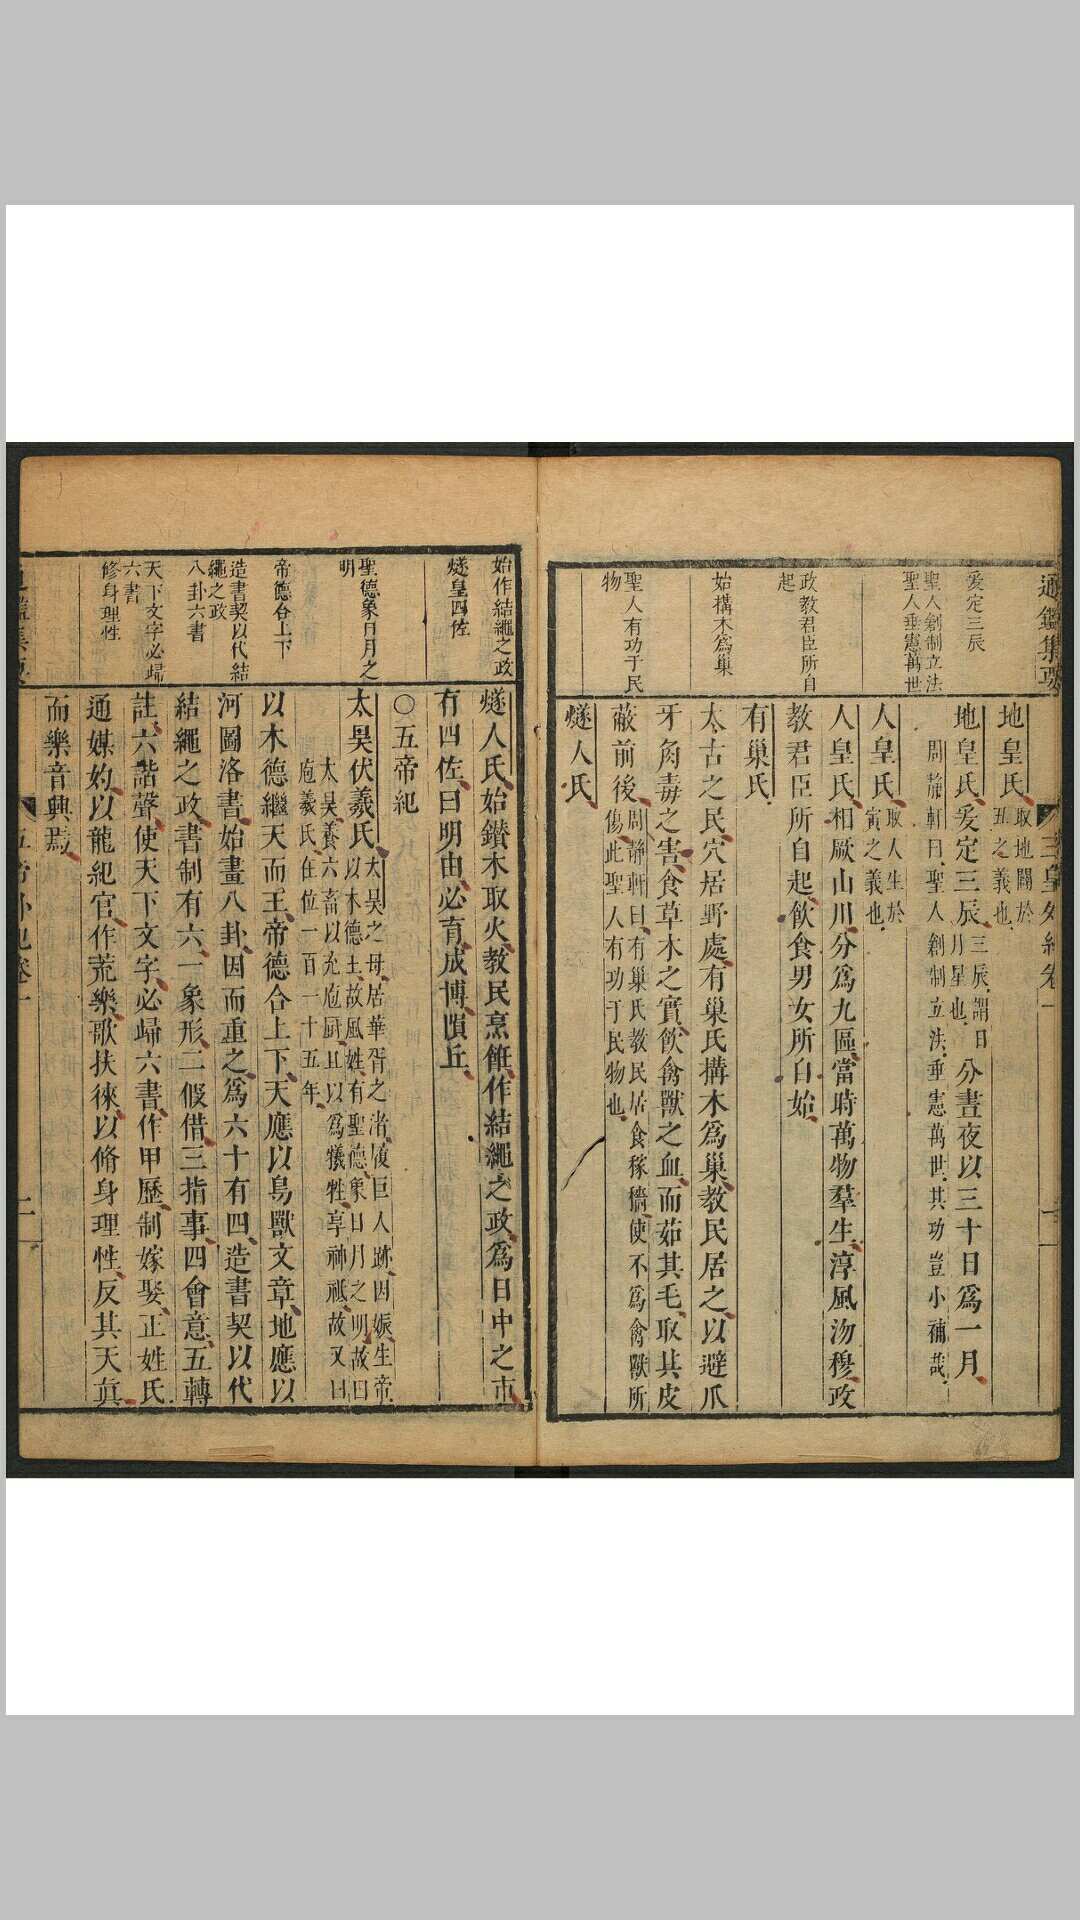 通鑑集要
三皇外紀卷一
愛定三辰
聖人創制立法
聖人垂憲萬世
政教君臣所自
起
始構木爲巢
聖人有功于民
物
地皇氏
取地闢於
丑之義也
地皇氏爰定三辰
三辰謂日
月星也
分晝夜以三十日爲一月
周靜軒曰聖人創制立法垂憲萬世其功豈小補哉
人皇氏
取人生於
寅之義也
人皇氏相厥山川分爲九區當時萬物羣生淳風沕穆政
教君臣所自起飲食男女所自始
有巢氏
太古之民穴居野處有巢氏搆木爲巢教民居之以避爪
牙角毒之害食草木之實飲禽獸之血而茹其毛取其皮
蔽前後
周靜軒曰有巢氏教民居食稼穡使不爲禽獸所
傷此聖人有功于民物也
燧人氏
始作結繩之政
燧皇四佐
聖德象日月之
明
帝德合上下
造書契以代結
繩之政
八卦六書
天下文字必歸
六書
修身理性
燧人氏始鑚木取火教民烹飪作結繩之政爲日中之市
有四佐曰明由必育成博隕丘
○五帝紀
太昊伏羲氏
太昊之母居華胥之渚履巨人跡因娠生帝
以木德王故風姓有聖德象日月之明故曰
太昊養六畜以充庖厨且以爲犧牲享神祇故又曰
庖羲氏在位一百一十五年
以木德繼天而王帝德合上下天應以鳥獸文章地應以
河圖洛書始畫八卦因而重之爲六十有四造書契以代
結繩之政書制有六一象形二假借三指事四會意五轉
註六諧聲使天下文字必歸六書作甲歷制嫁娶正姓氏
通媒妁以龍紀官作荒樂歌扶徠以脩身理性反其天眞
而樂音興焉
五帝外紀卷一